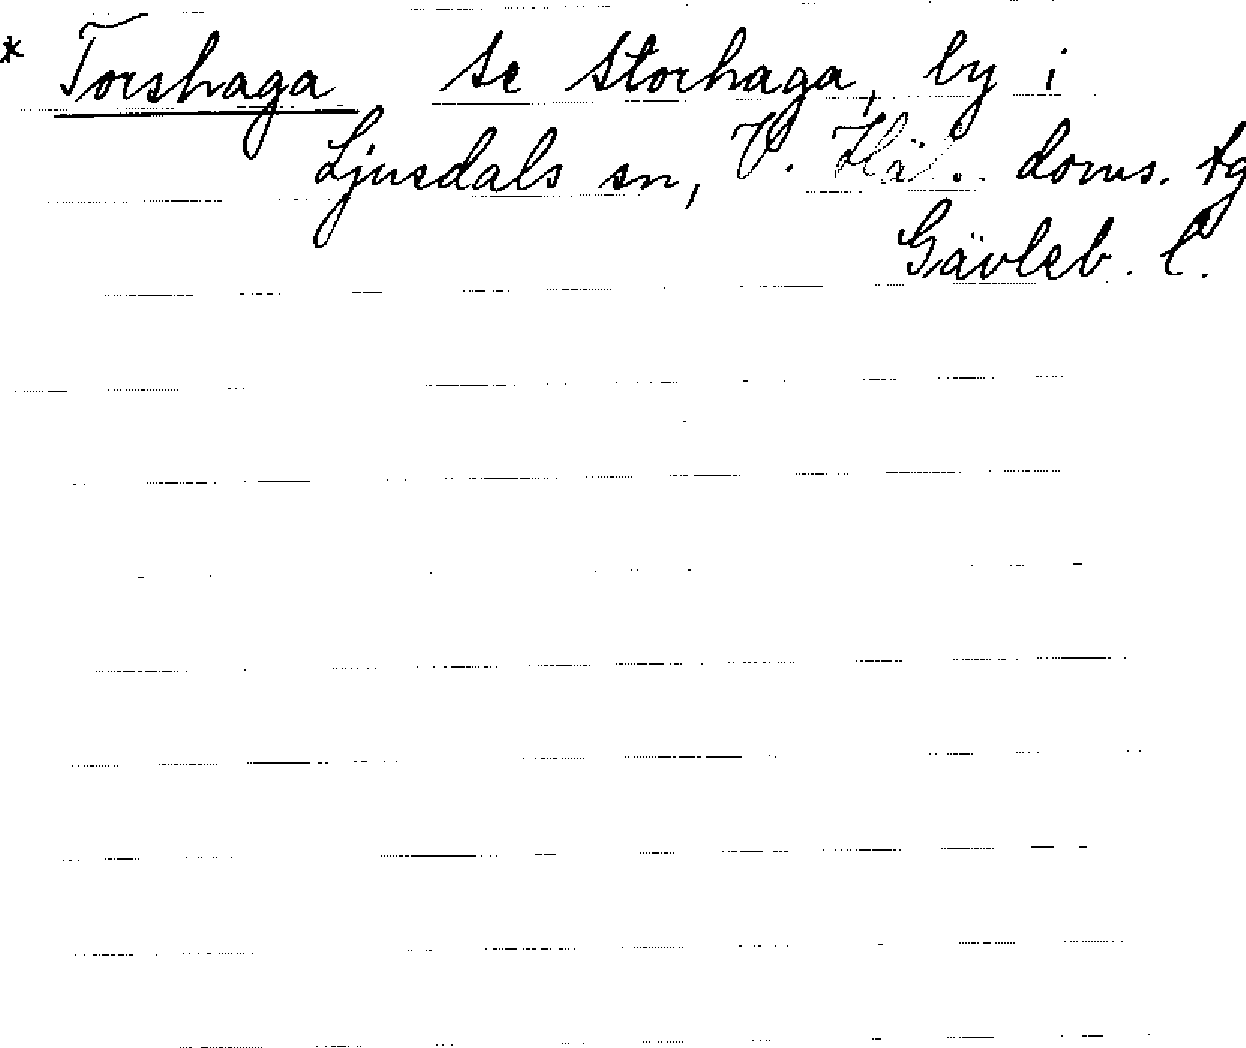 * Torshaga se Storhaga, by i
Ljusdals sn, V. Hä. doms. tg
Gävleb. l.